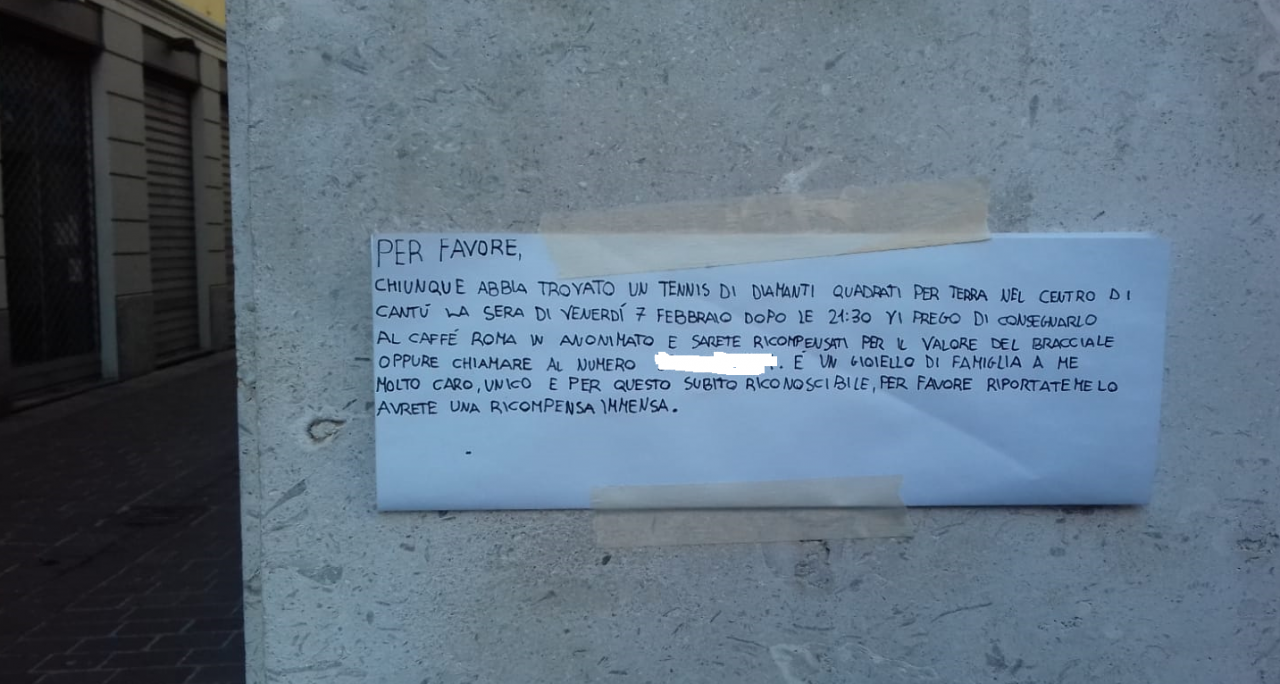 PER FAVORE,
CHIUNQUE ABBIA TROVATO UN TENNIS DI DIAMANTI QUADRATI PER TERRA NEL CENTRO DI
CANTÚ LA SERA DI VENERDÍ 7 FEBBRAIO DOPO LE 21:30 VI PREGO DI CONSEGNARLO
AL CAFFÉ ROMA IN ANONIMATO E SARETE RICOMPENSATI PER IL VALORE DEL BRACCIALE
OPPURE CHIAMARE AL NUMERO . É UN GIOIELLO DI FAMIGLIA A ME
MOLTO CARO, UNICO E PER QUESTO SUBITO RICONOSCIBILE, PER FAVORE RIPORTATEMELO
AVRETE UNA RICOMPENSA IMMENSA.